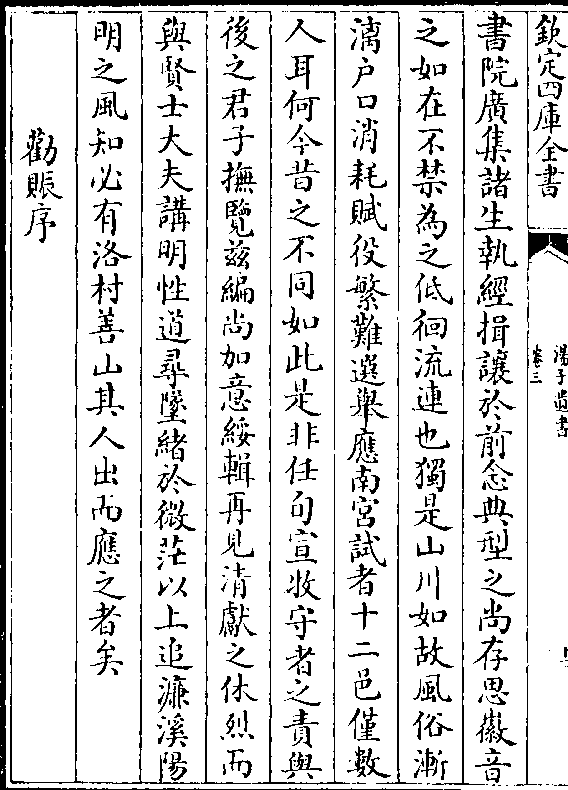 欽定四庫全書
湯子遺書
卷三
書院廣集諸生執經揖讓於前念典型之尚存思徽音
之如在不禁為之低徊流連也獨是山川如故風俗漸
漓户口消耗賦役繁難選舉應南宫試者十二邑僅數
人耳何今昔之不同如此是非任旬宣牧守者之責與
後之君子撫覽兹編尚加意綏輯再見清獻之休烈而
與賢士大夫講明性道尋墜緒於微茫以上追濂溪陽
明之風知必有洛村善山其人出而應之者矣
勸賑序